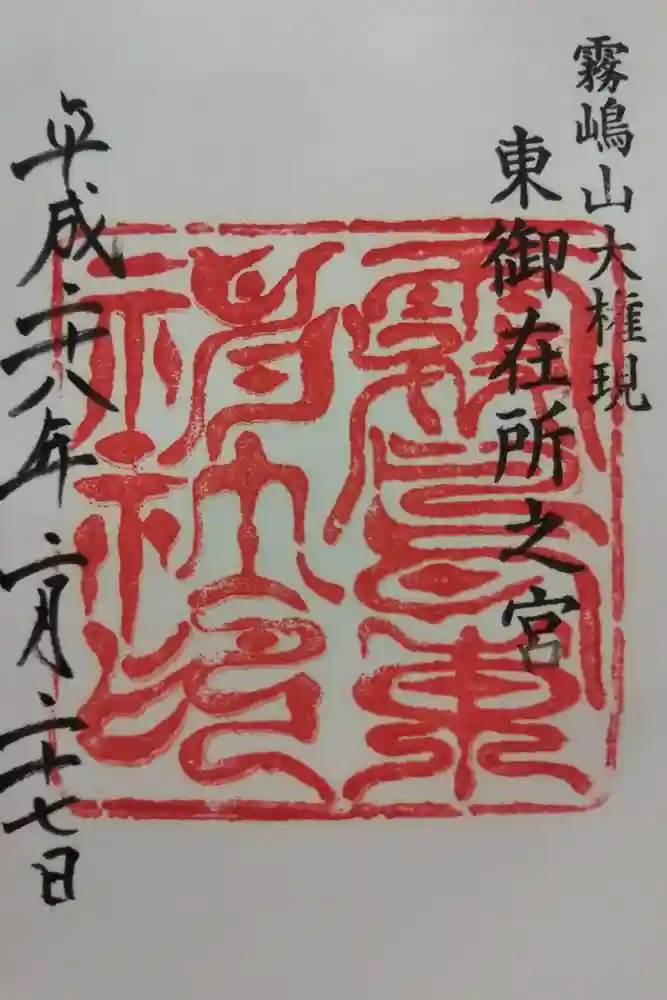 霧嶋山大権現
東御在所之宮
霧島東
神社印
平成二十八年二月二十七日